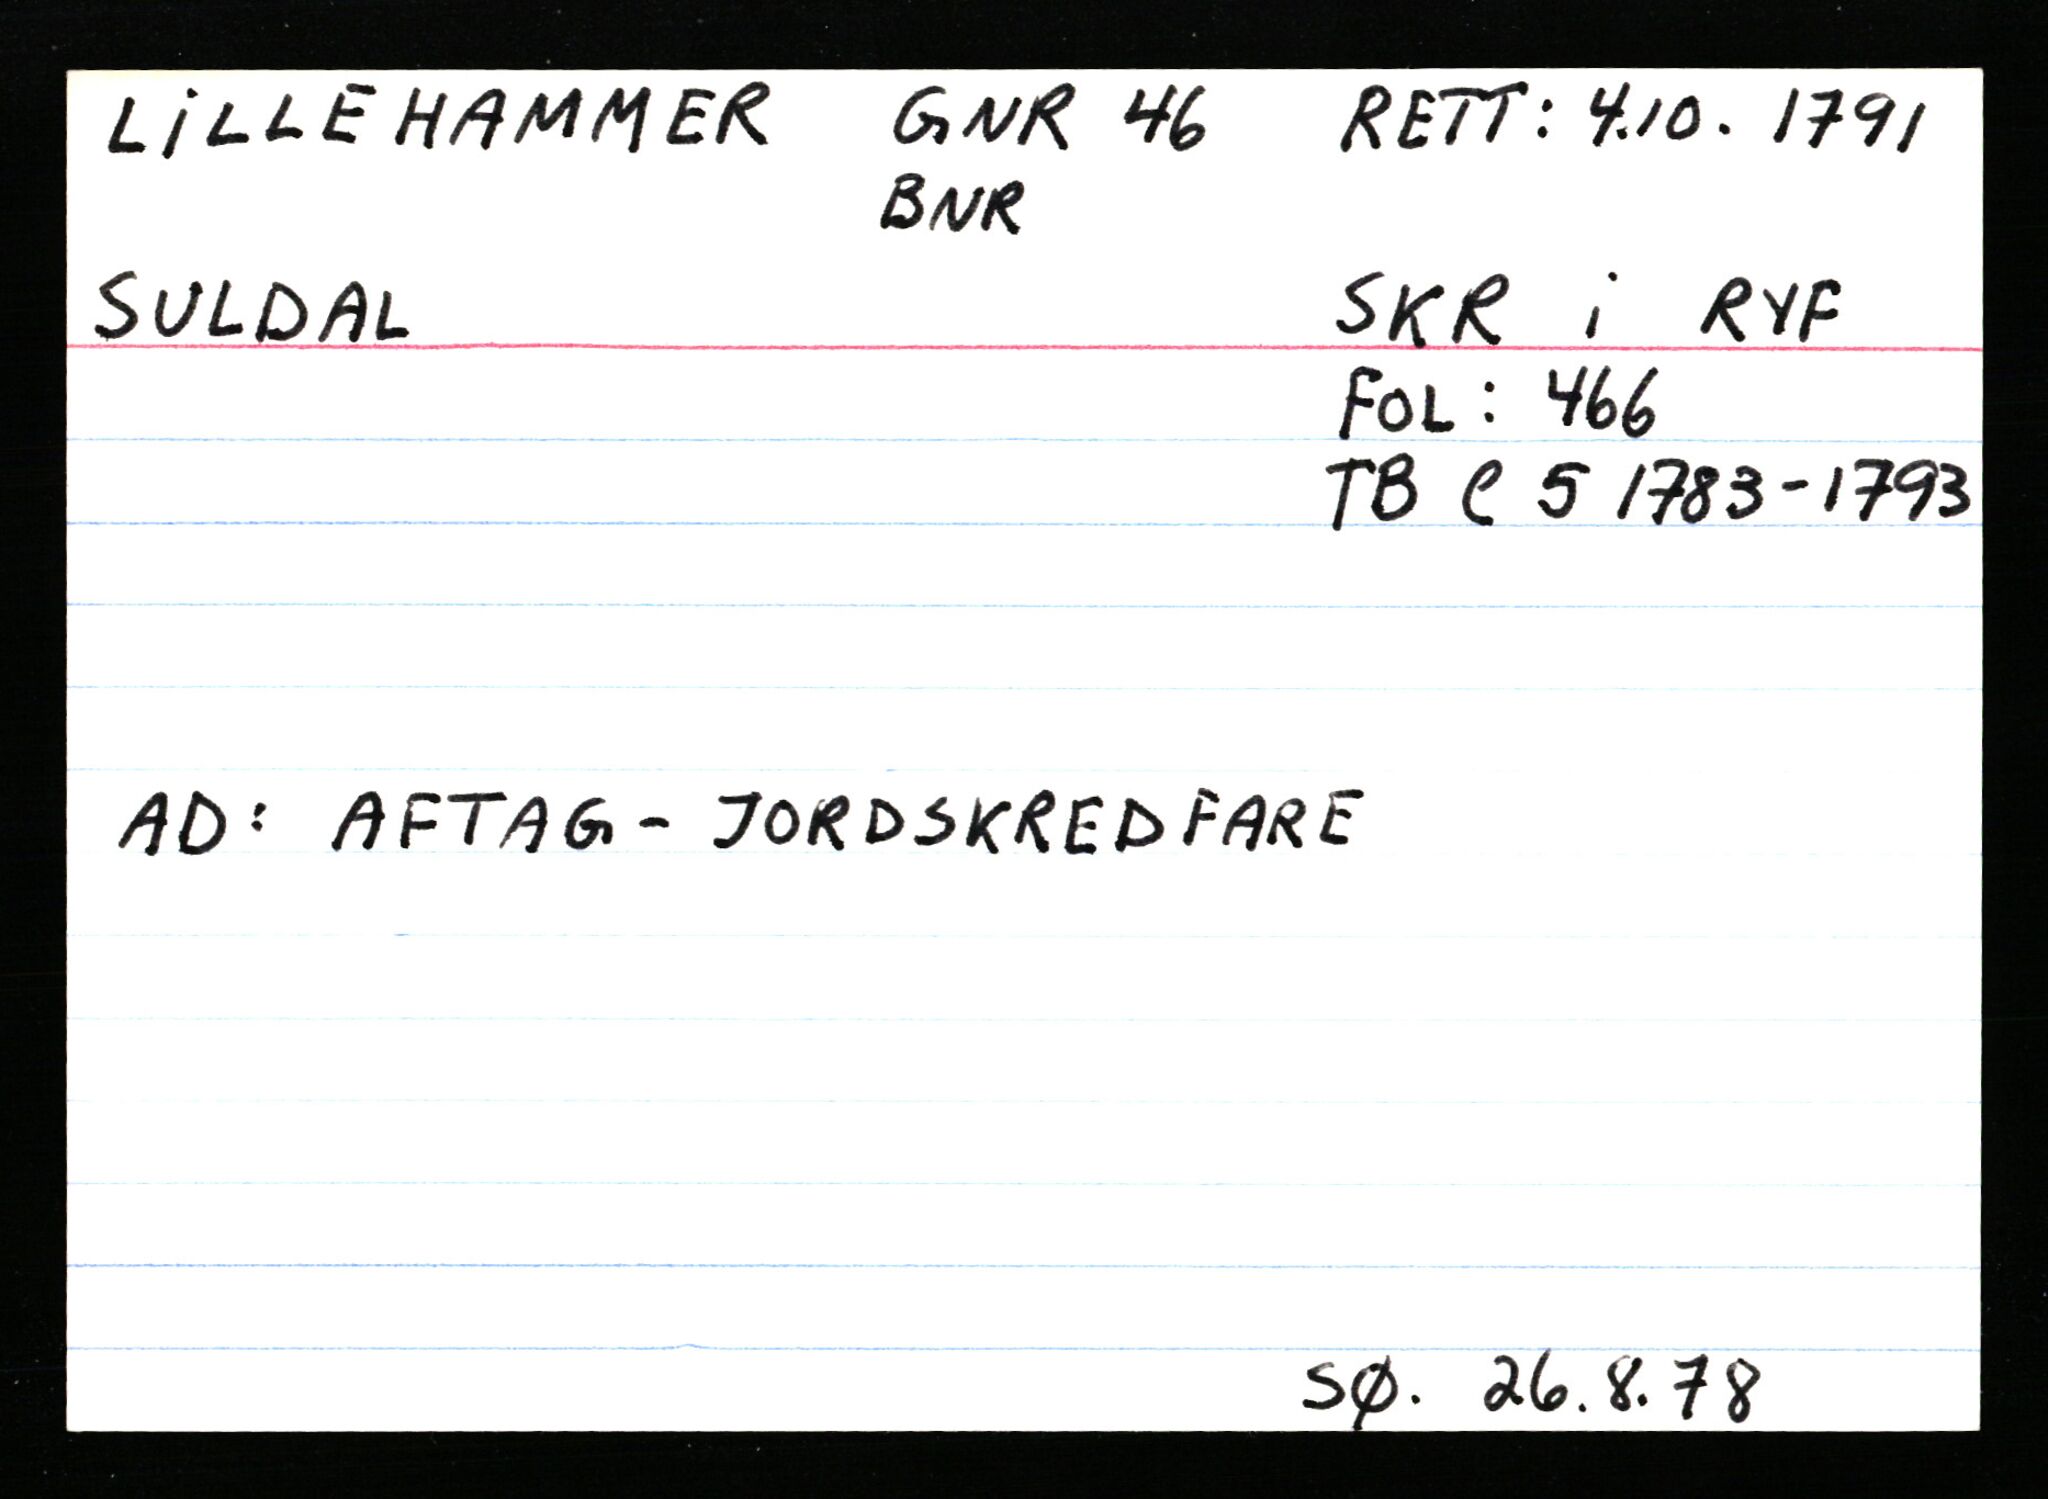 LiLLEHAMMER GNR 46 RETT: 4.10. 1791
BNR
SULDAL SKR i RYF
FOL: 466
TB C 5 1783-1793
AD: AFTAG- JORDSKREDFARE
SØ. 26.8.78